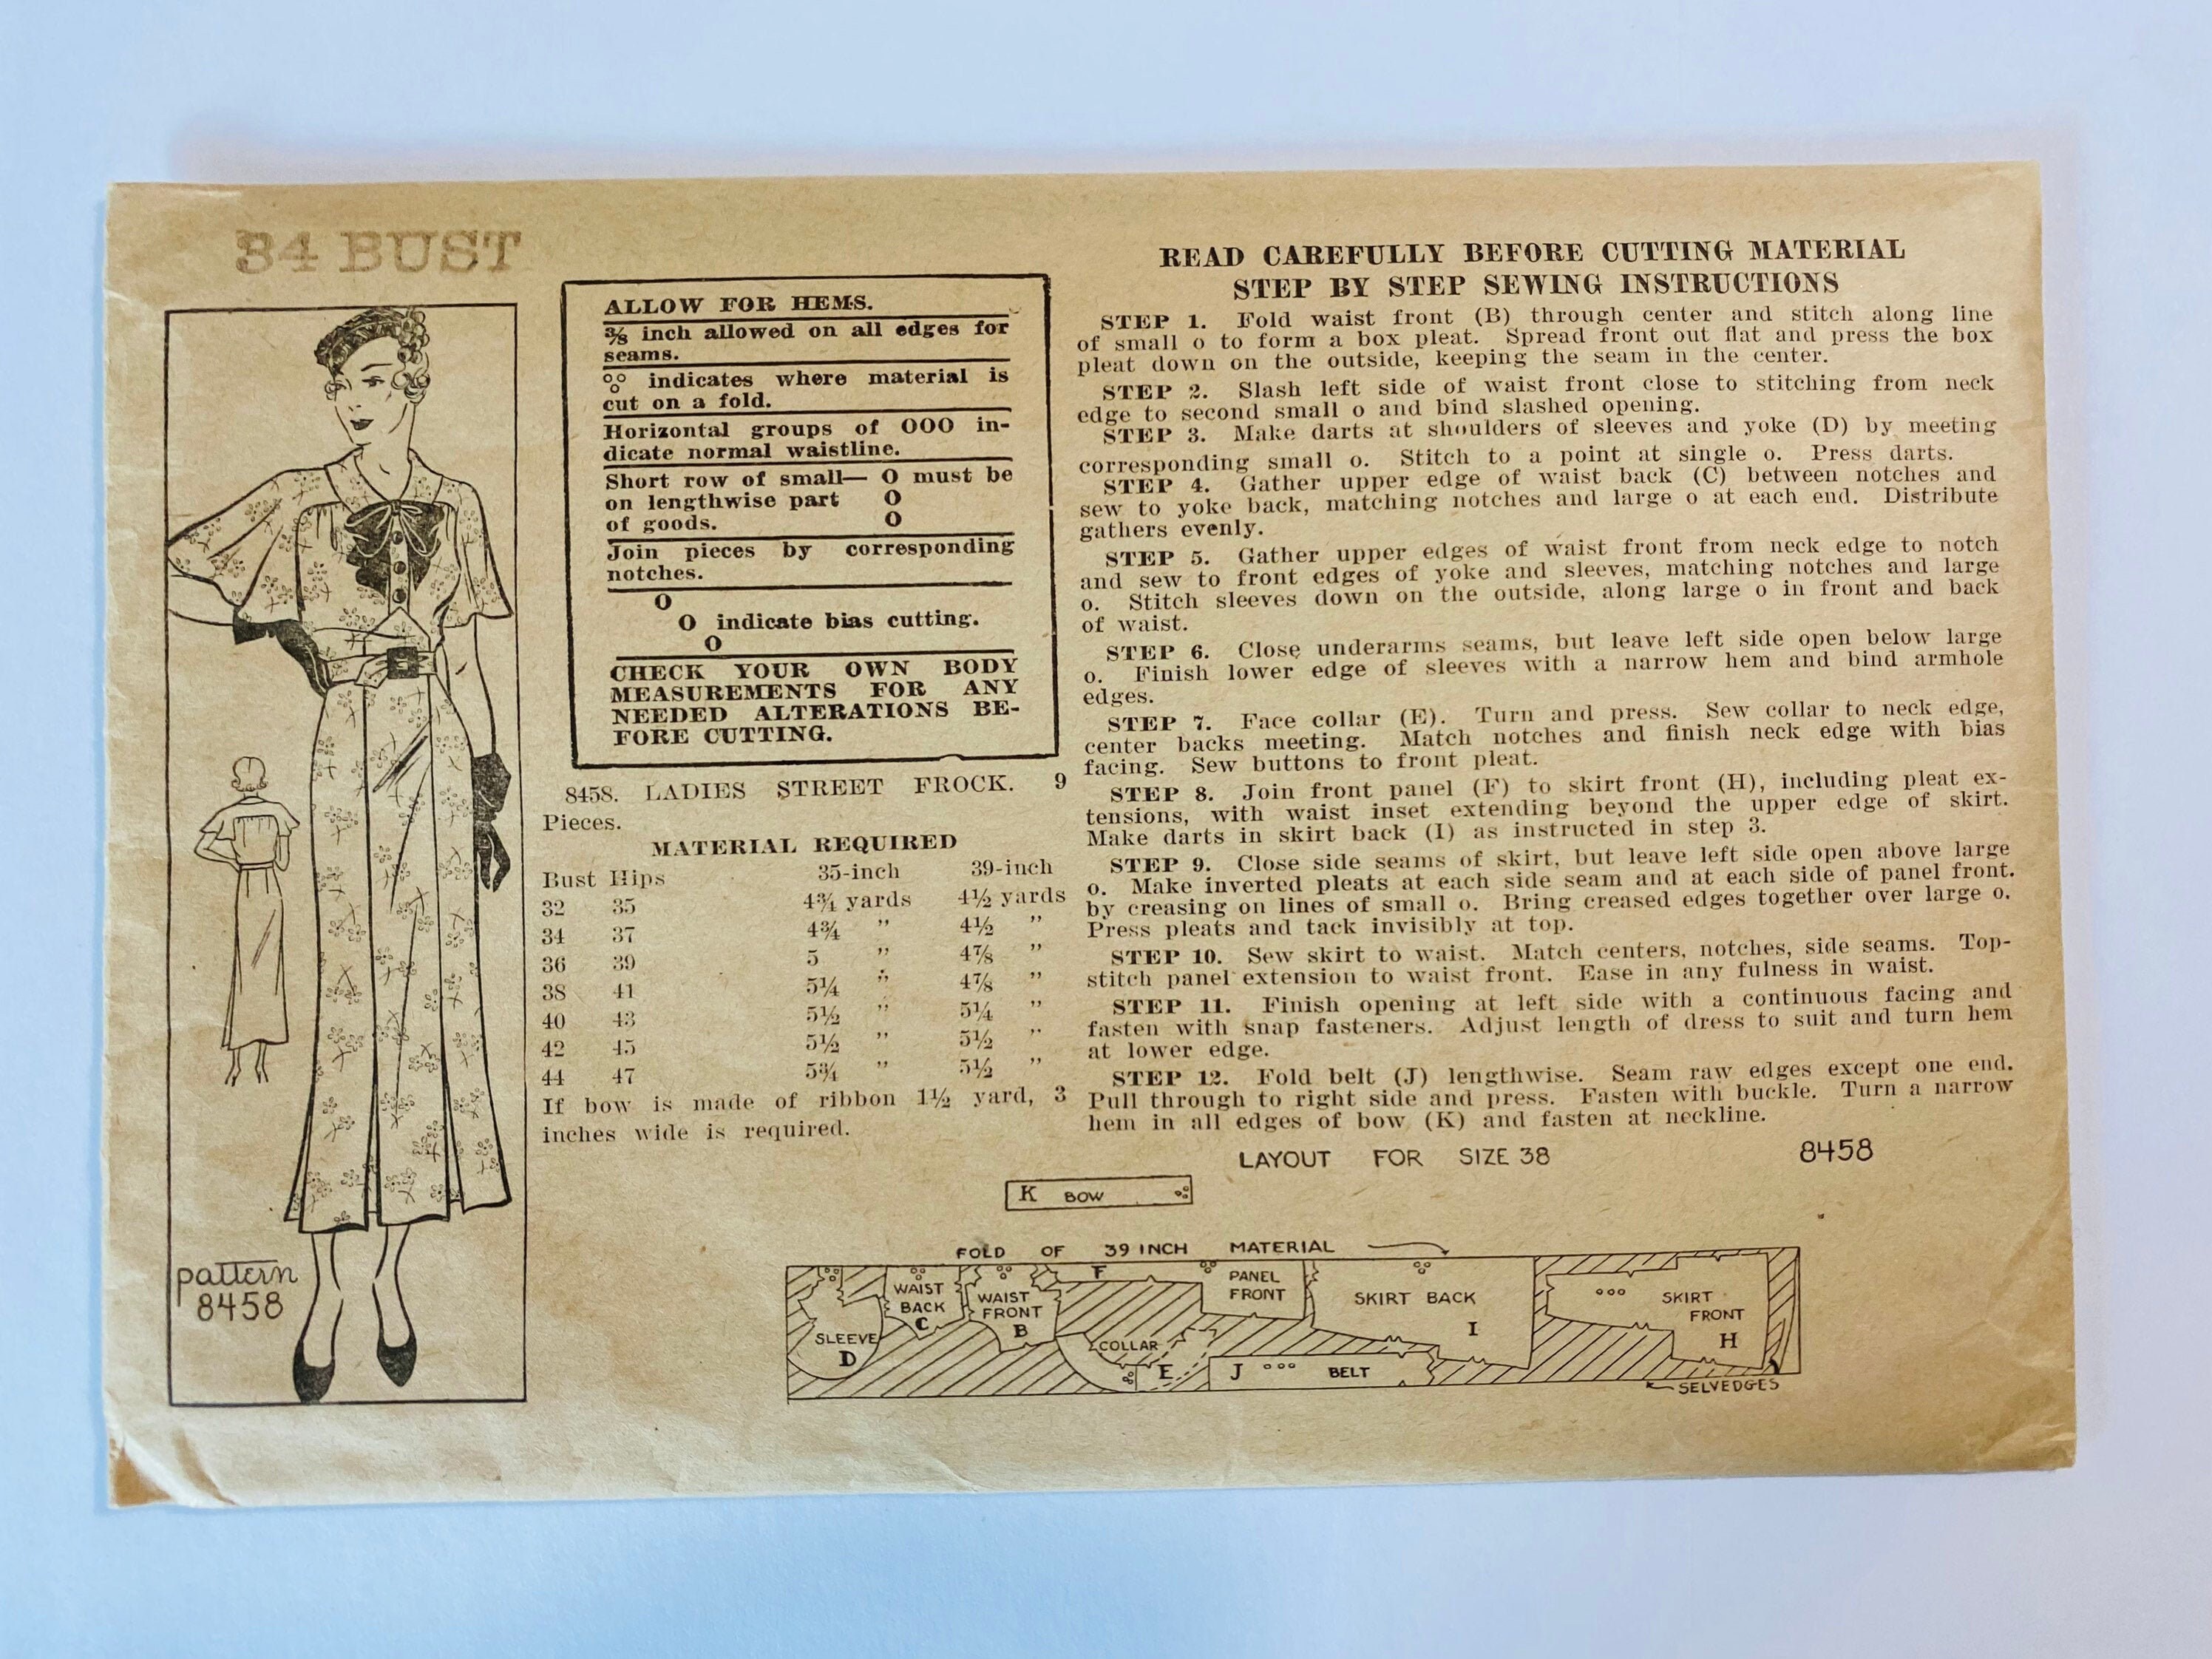 34 BUST
pattern
8458
ALLOW FOR HEMS.
⅜ inch allowed on all edges for
seams.
indicates where material is
cut on a fold.
Horizontal groups of OOO in-
dicate normal waistline.
Short row of small— O must be
on lengthwise part O
of goods. O
Join pieces by corresponding
notches.
O
O indicate bias cutting.
O
CHECK YOUR OWN BODY
MEASUREMENTS FOR ANY
NEEDED ALTERATIONS BE-
FORE CUTTING.
8458. LADIES STREET FROCK. 9
Pieces.
MATERIAL REQUIRED
Bust Hips 35-inch 39-inch
32 35 4¾ yards 4½ yards
34 37 4¾ " 4½ "
36 39 5 " 4⅞ "
38 41 5¼ " 4⅞ "
40 43 5½ " 5¼ "
42 45 5½ " 5½ "
44 47 5¾ " 5½ "
If bow is made of ribbon 1½ yard, 3
inches wide is required.
READ CAREFULLY BEFORE CUTTING MATERIAL
STEP BY STEP SEWING INSTRUCTIONS
STEP 1. Fold waist front (B) through center and stitch along line
of small o to form a box pleat. Spread front out flat and press the box
pleat down on the outside, keeping the seam in the center.
STEP 2. Slash left side of waist front close to stitching from neck
edge to second small o and bind slashed opening.
STEP 3. Make darts at shoulders of sleeves and yoke (D) by meeting
corresponding small o. Stitch to a point at single o. Press darts.
STEP 4. Gather upper edge of waist back (C) between notches and
sew to yoke back, matching notches and large o at each end. Distribute
gathers evenly.
STEP 5. Gather upper edges of waist front from neck edge to notch
and sew to front edges of yoke and sleeves, matching notches and large
o. Stitch sleeves down on the outside, along large o in front and back
of waist.
STEP 6. Close underarms seams, but leave left side open below large
o. Finish lower edge of sleeves with a narrow hem and bind armhole
edges.
STEP 7. Face collar (E). Turn and press. Sew collar to neck edge,
center backs meeting. Match notches and finish neck edge with bias
facing. Sew buttons to front pleat.
STEP 8. Join front panel (F) to skirt front (H), including pleat ex-
tensions, with waist inset extending beyond the upper edge of skirt.
Make darts in skirt back (I) as instructed in step 3.
STEP 9. Close side seams of skirt, but leave left side open above large
o. Make inverted pleats at each side seam and at each side of panel front.
by creasing on lines of small o. Bring creased edges together over large o.
Press pleats and tack invisibly at top.
STEP 10. Sew skirt to waist. Match centers, notches, side seams. Top-
stitch panel extension to waist front. Ease in any fulness in waist.
STEP 11. Finish opening at left side with a continuous facing and
fasten with snap fasteners. Adjust length of dress to suit and turn hem
at lower edge.
STEP 12. Fold belt (J) lengthwise. Seam raw edges except one end.
Pull through to right side and press. Fasten with buckle. Turn a narrow
hem in all edges of bow (K) and fasten at neckline.
LAYOUT FOR SIZE 38 8458
K BOW
FOLD OF 39 INCH MATERIAL
SLEEVE
D
WAIST
BACK
C
WAIST
FRONT
B
F
PANEL
FRONT
COLLAR
E
J BELT
SKIRT BACK
I
SKIRT
FRONT
H
SELVEDGES